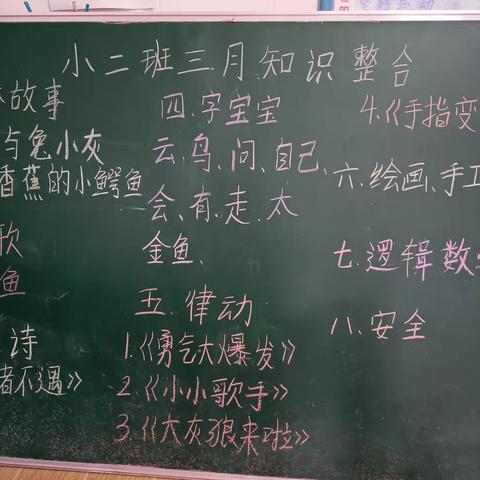 小二班三月知识整合
故事
与兔小灰
香蕉的小鳄鱼
歌
鱼
诗
者不遇》
四、字宝宝
云、鸟、问、自己、
会、有、走、大
金鱼、
五、律动
1.《勇气大爆发》
2.《小小歌手》
3.《大灰狼来啦》
4.《手指变
六、绘画、手工
七、逻辑数
八、安全